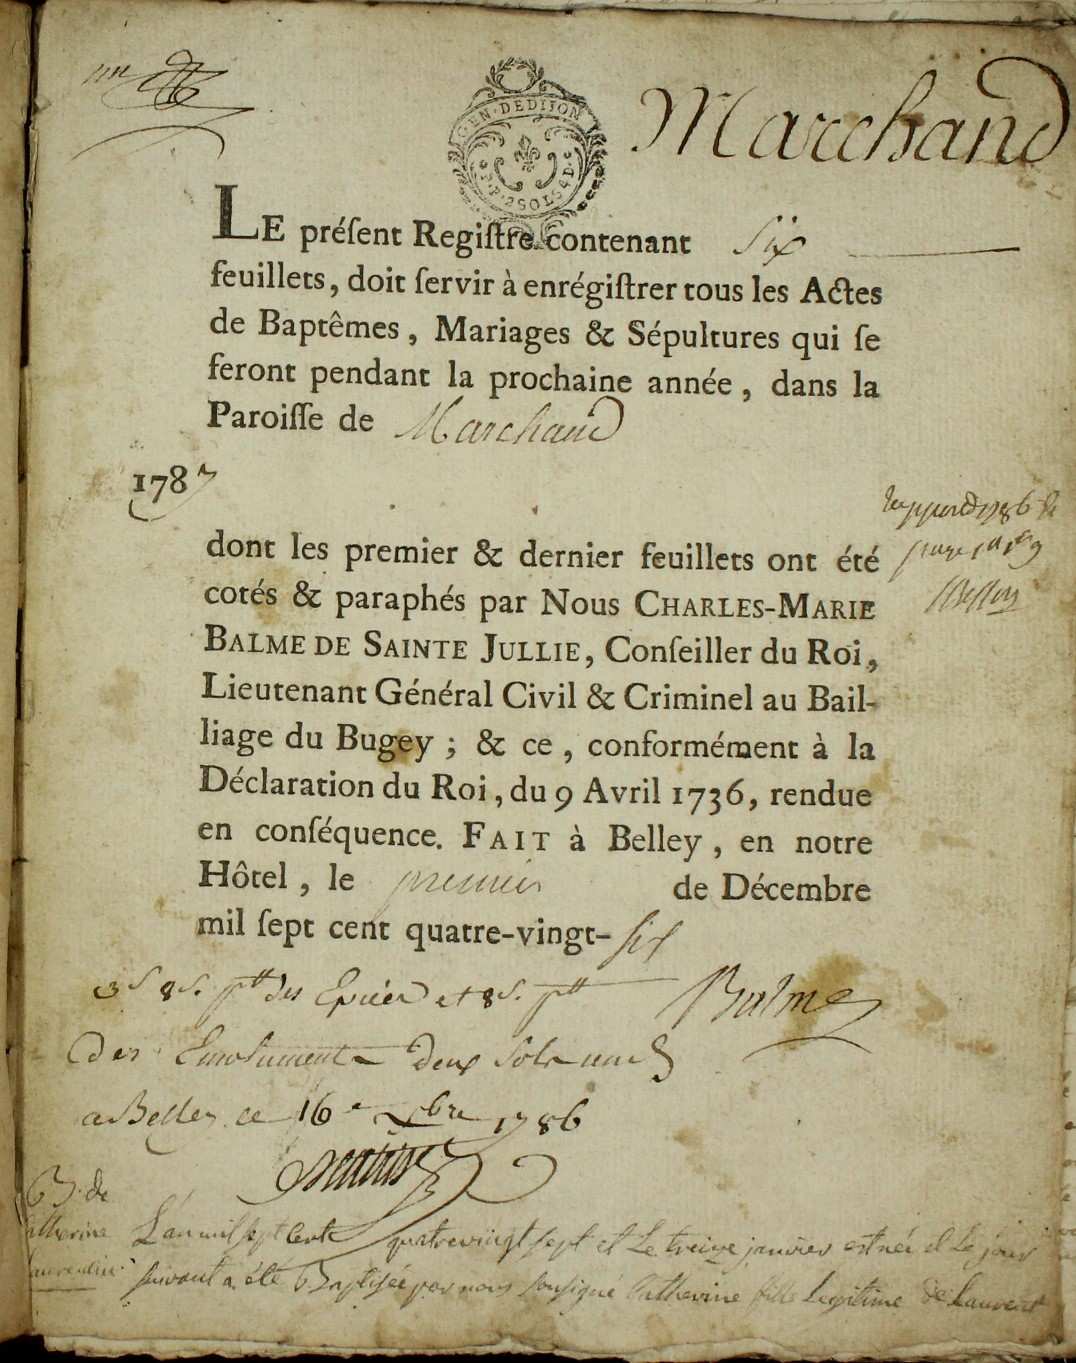 GEN·DEDIJON
Marchand
P·2SOLS4D·
LE préſent Regiſtre contenant Six
feuillets, doit ſervir à enrégiſtrer tous les Actes
de Baptêmes, Mariages & Sépultures qui ſe
feront pendant la prochaine année, dans la
Paroiſſe de Marchand
1787
dont les premier & dernier feuillets ont été
cotés & paraphés par Nous CHARLES-MARIE
BALME DE SAINTE JULLIE, Conſeiller du Roi,
Lieutenant Général Civil & Criminel au Bail-
liage du Bugey ; & ce, conformément à la
Déclaration du Roi, du 9 Avril 1736, rendue
en conſéquence. FAIT à Belley, en notre
Hôtel, le premier de Décembre
mil ſept cent quatre-vingt-six
1786
3s 8s. ptt des Epices et 8s. ptt Balme
Des Emolument Deux Sols
a Belley ce 16e xbre 1786
B. de
Catherine
Laurent
L'an mil sept Cent quatrevingt sept et Le treize janvier est née et Le jour
suivant a été Baptisée par nous soussigné Catherine fille Legitime de Laurent